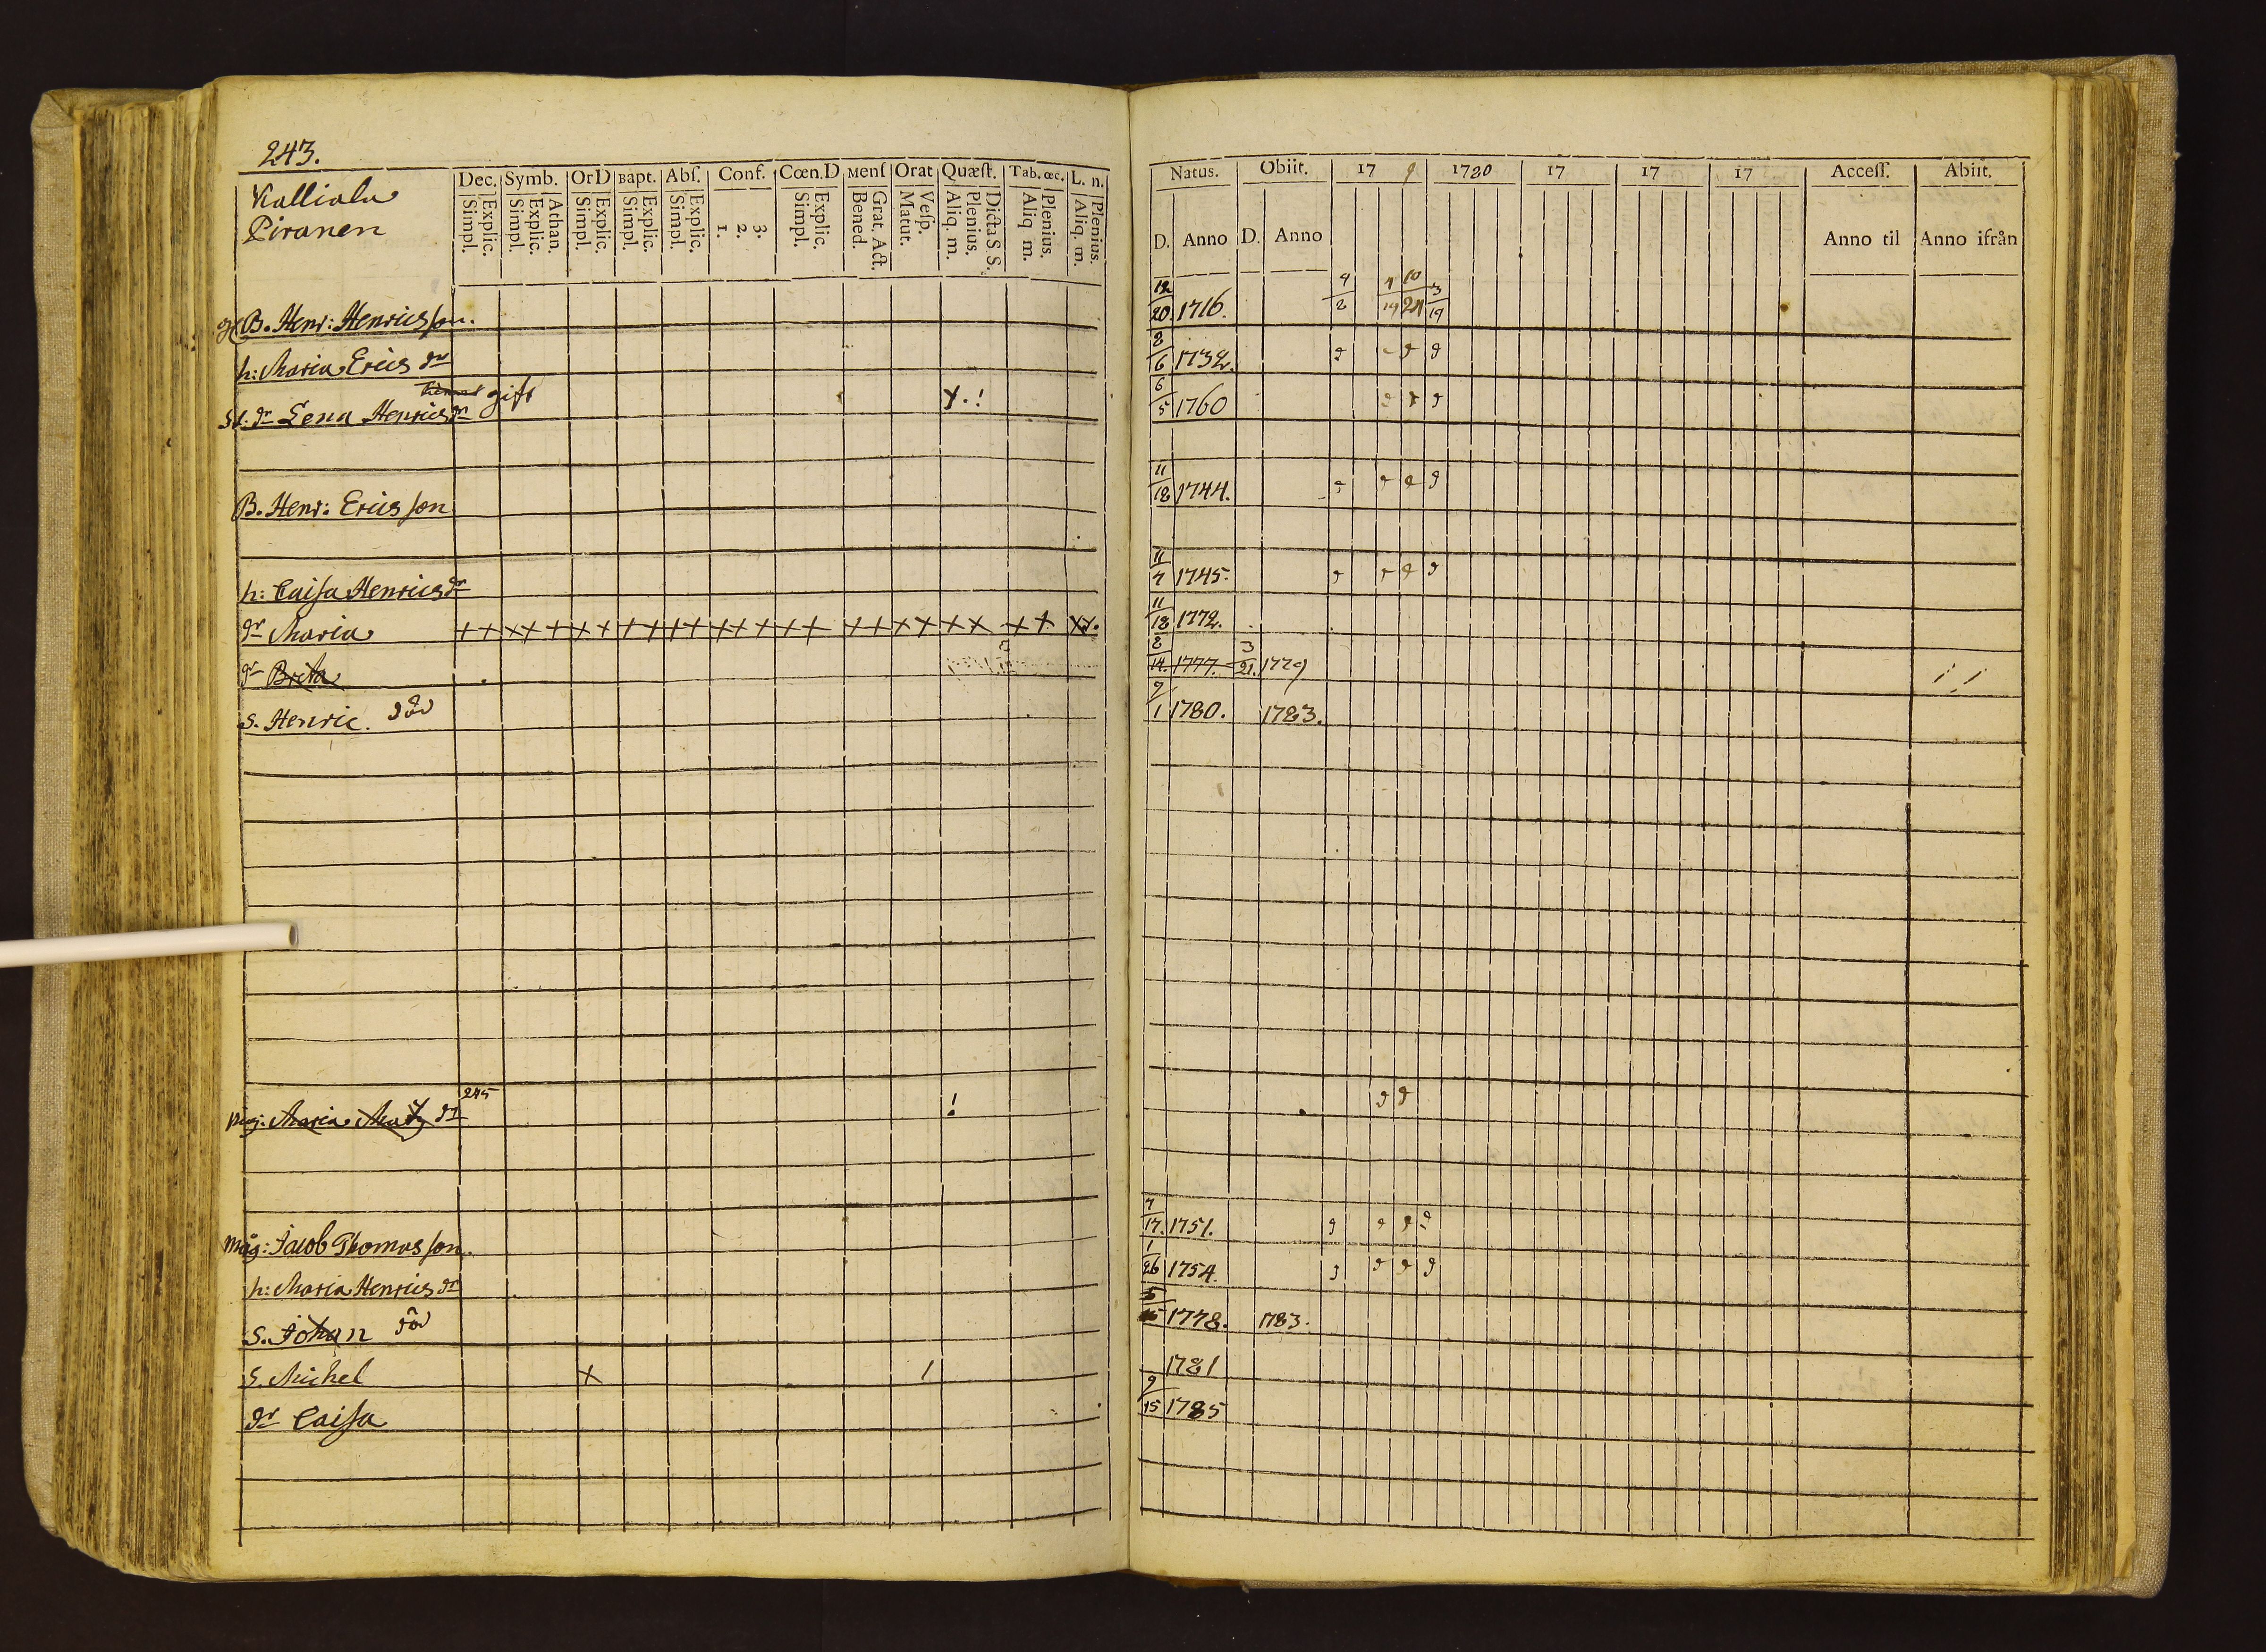 243.
Kalliala
Piranen
Dec. Symb. OrD Bapt. Abſ. Conf. Cœn.D Menſ Orat Quæſt. Tab. œc. L. n.
Simpl. Explic. Simpl. Explic. Athan. Simpl. Explic. Simpl. Explic. Simpl. Explic. 1. 2. 3. Simpl. Explic. Bened. Grat. Act. Matut. Veſp. Aliq. m. Plenius. Dicta S S. Aliq m. Plenius. Aliq. m. Plenius.
Natus. Obiit. 17 9 1780 17 17 17 Acceſſ. Abiit.
D. Anno D. Anno Anno til Anno ifrån
B. Henr: Henricsson. 12/20 1716.
h: Maria Erics dr 8/6 1732.
gift
dr Lena Henricsdr 6/5 1760
B. Henr: Ericsson 11/18 1744.
h: Caisa Henricsdr 11/7 1745.
dr Maria 11/18 1772.
dr Brita 8/14. 1777. 3/21. 1779
s. Henric. död 9/1 1780. 1783.
245
pig: Maria Matz dr
måg: Jacob Thomasson. 7/17. 1751.
h: Maria Henrics dr 1/26 1754.
s. Johan död 1778. 1783.
s. Michel 1781
dr Caisa 9/15 1785